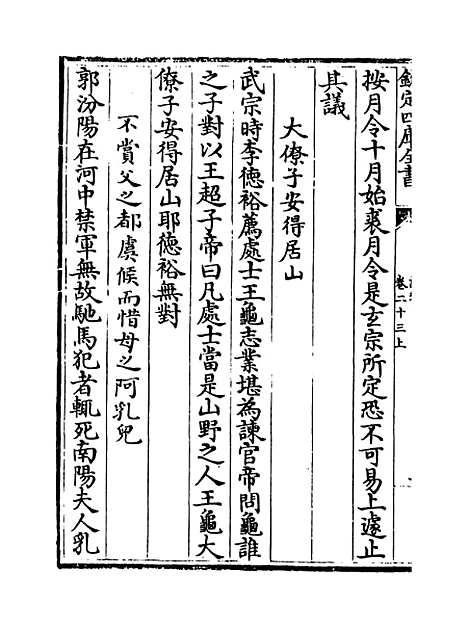 欽定四庫全書
卷二十三上
按月令十月始裘月令是玄宗所定恐不可易上遽止
其議
大僚子安得居山
武宗時李德裕薦處士王龜志業堪為諫官帝問龜誰
之子對以王超子帝曰凡處士當是山野之人王龜大
僚子安得居山耶德裕無對
不賞父之都虞候而惜母之阿乳兒
郭汾陽在河中禁軍無故馳馬犯者輒死南陽夫人乳